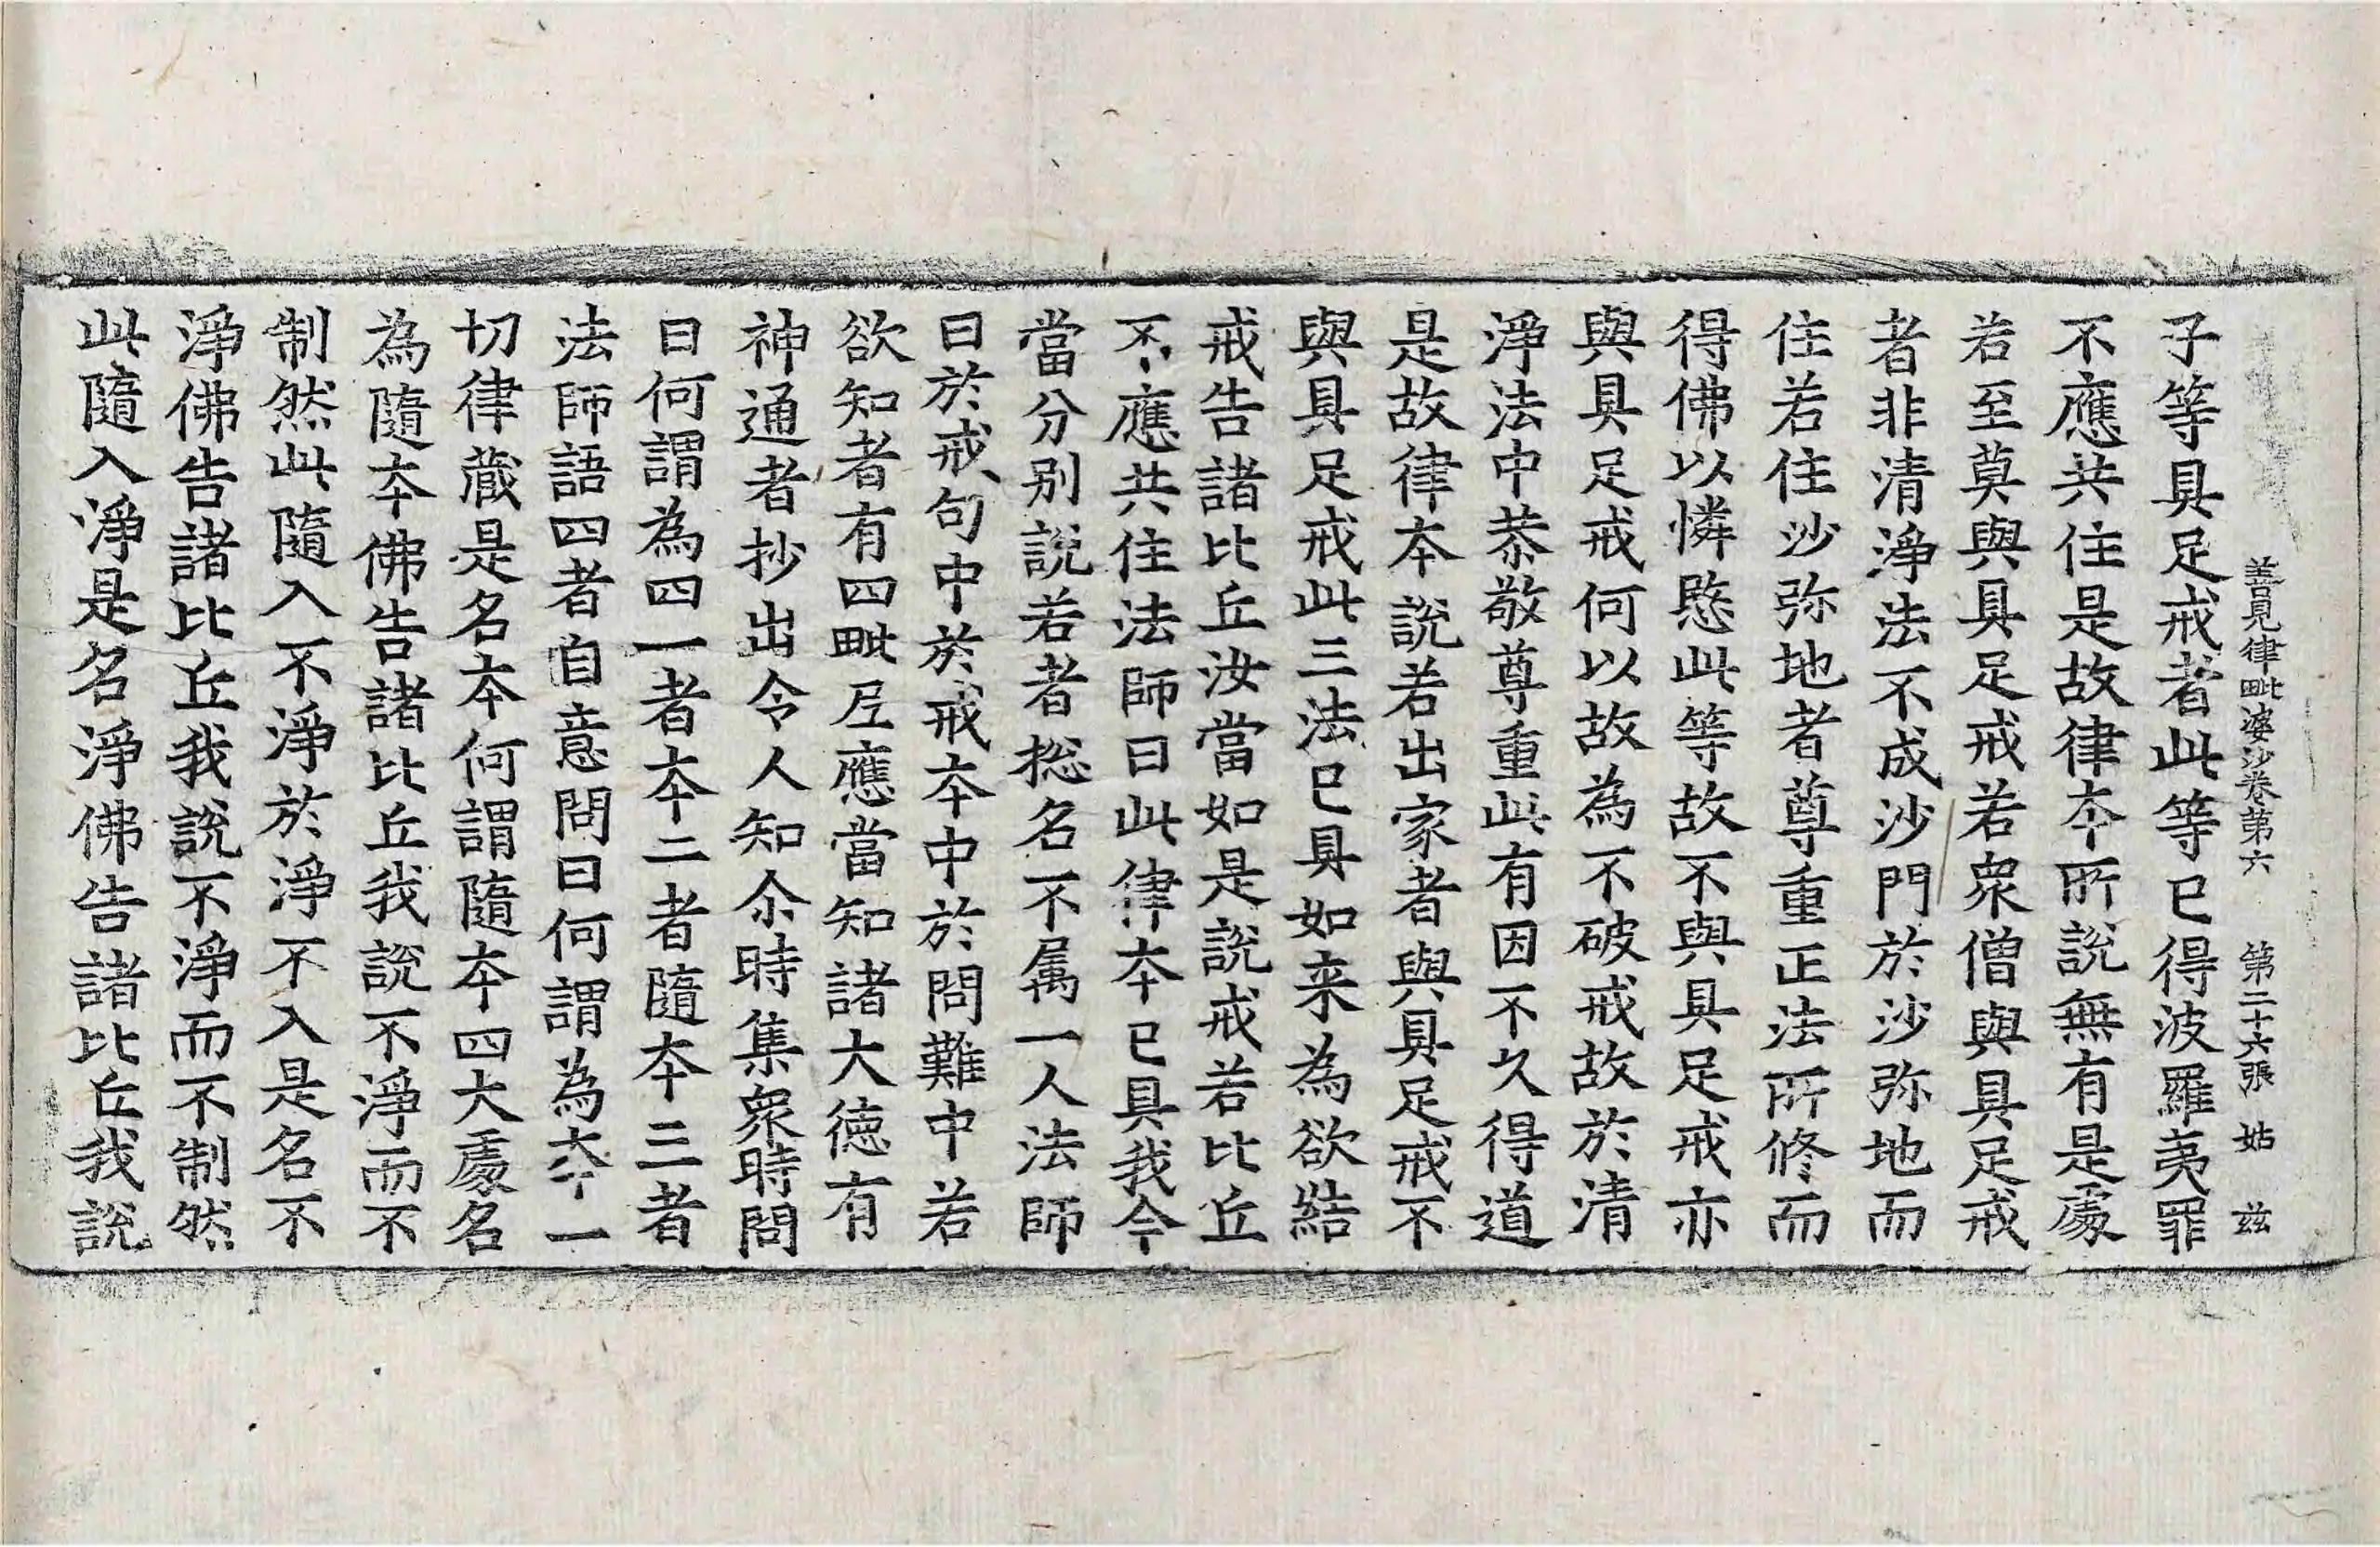 善見律毗婆沙卷第六 第二十六張 姑 茲
子等具足戒者此等已得波羅夷罪
不應共住是故律夲所說無有是處
若至莫與具足戒若衆僧與具足戒
者非清淨法不成沙門於沙弥地而
住若住沙弥地者尊重正法所修而
得佛以憐愍此等故不與具足戒亦
與具足戒何以故為不破戒故於清
淨法中恭敬尊重此有因不久得道
是故律夲說若出家者與具足戒不
與具足戒此三法已具如来為欲結
戒告諸比丘汝當如是說戒若比丘
不應共住法師曰此律夲已具我今
當分別說若者捴名不属一人法師
曰於戒句中於戒夲中於問難中若
欲知者有四毗尼應當知諸大德有
神通者抄出令人知尒時集衆時問
曰何謂為四一者夲二者隨夲三者
法師語四者自意問曰何謂為夲一
切律蔵是名夲何謂隨夲四大處名
為隨夲佛告諸比丘我說不淨而不
制然此隨入不淨於淨不入是名不
淨佛告諸比丘我說不淨而不制然
此隨入淨是名淨佛告諸比丘我說